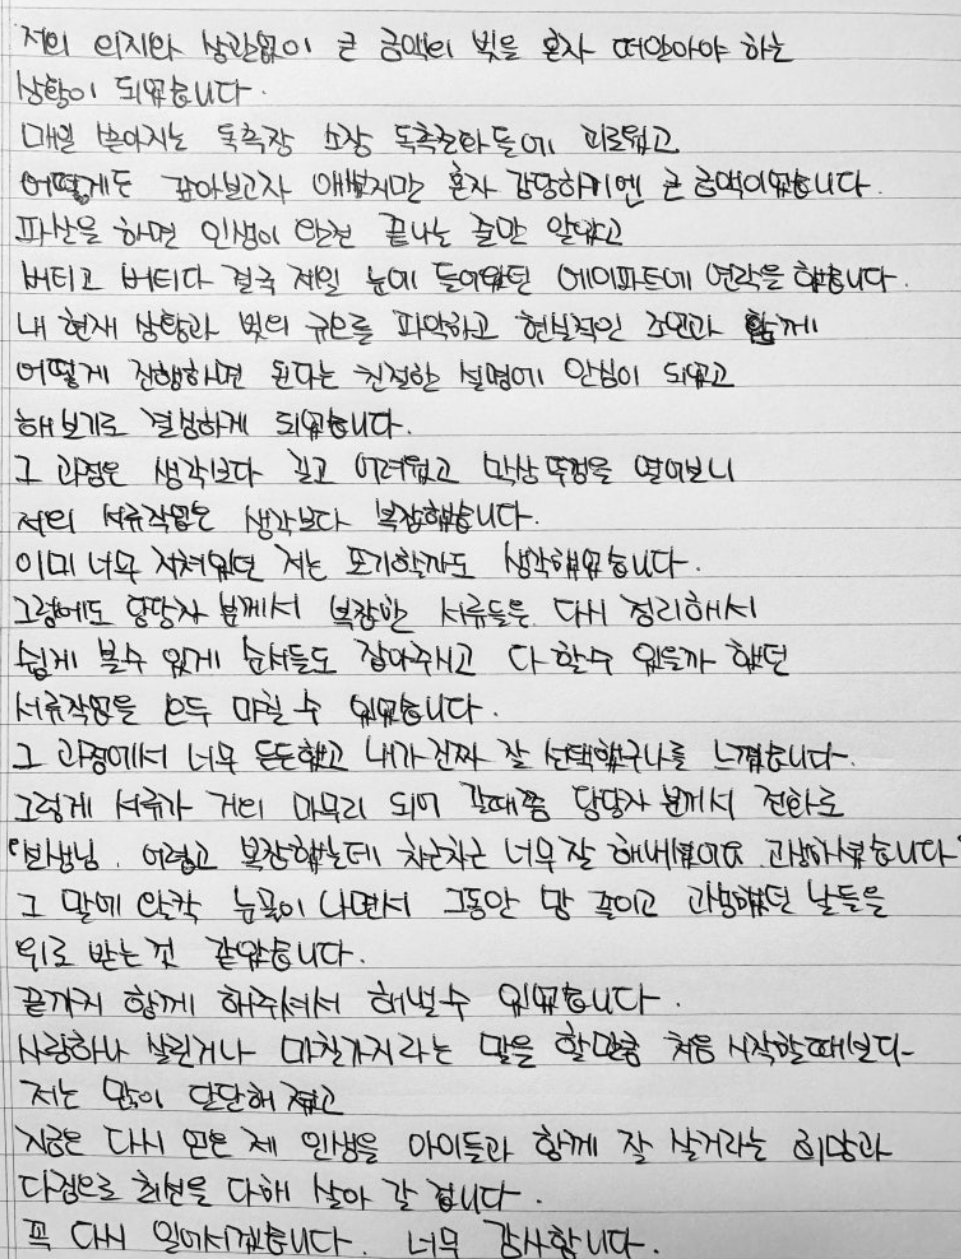 저의 의지와 상관없이 큰 금액의 빚을 혼자 떠안아야 하는
상황이 되었습니다.
매일 쏟아지는 독촉장 소장 독촉전화들에 괴로웠고
어떻게든 갚아보고자 애썼지만 혼자 감당하기엔 큰 금액이었습니다.
파산을 하면 인생이 완전 끝나는 줄만 알았고
버티고 버티다 결국 제일 눈에 들어왔던 에이파트에 연락을 했습니다.
내 현재 상황과 빚의 규모를 파악하고 현실적인 조언과 함께
어떻게 진행하면 된다는 친절한 설명에 안심이 되었고
해보기로 결심하게 되었습니다.
그 과정은 생각보다 길고 어려웠고 막상 뚜껑을 열어보니
저의 서류작업은 생각보다 복잡했습니다.
이미 너무 지쳐있던 저는 포기할까도 생각했었습니다.
그럼에도 담당자 분께서 복잡한 서류들을 다시 정리해서
쉽게 볼수 있게 순서들도 잡아주시고 다 할수 있을까 했던
서류작업을 모두 마칠 수 있었습니다.
그 과정에서 너무 든든했고 내가 진짜 잘 선택했구나를 느꼈습니다.
그렇게 서류가 거의 마무리 되어 갈때쯤 담당자 분께서 전화로
"선생님. 어렵고 복잡했는데 차근차근 너무 잘 해내셨어요 고생하셨습니다"
그 말에 왈칵 눈물이 나면서 그동안 맘 졸이고 고생했던 날들을
위로 받는것 같았습니다.
끝까지 함께 해주셔서 해낼수 있었습니다.
사람하나 살린거나 마찬가지라는 말을 할만큼 처음 시작할때보다
저는 많이 단단해 졌고
지금은 다시 얻은 제 인생을 아이들과 함께 잘 살거라는 희망과
다짐으로 최선을 다해 살아 갈 겁니다.
꼭 다시 일어서겠습니다. 너무 감사합니다.